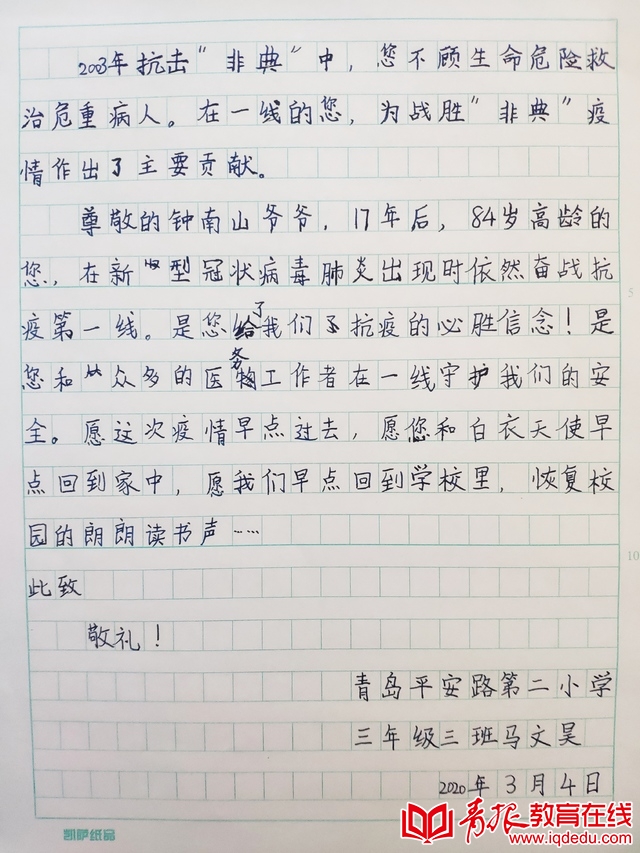 2003年抗击“非典”中，您不顾生命危险救
治危重病人。在一线的您，为战胜“非典”疫
情作出了主要贡献。
尊敬的钟南山爷爷，17年后，84岁高龄的
您，在新型冠状病毒肺炎出现时依然奋战抗
疫第一线。是您给了我们抗疫的必胜信念！是
您和众多的医务工作者在一线守护我们的安
全。愿这次疫情早点过去，愿您和白衣天使早
点回到家中，愿我们早点回到学校里，恢复校
园的朗朗读书声……
此致
敬礼！
青岛平安路第二小学
三年级三班马文昊
2020年3月4日
5
10
凯萨纸品
青报教育在线
www.iqdedu.com